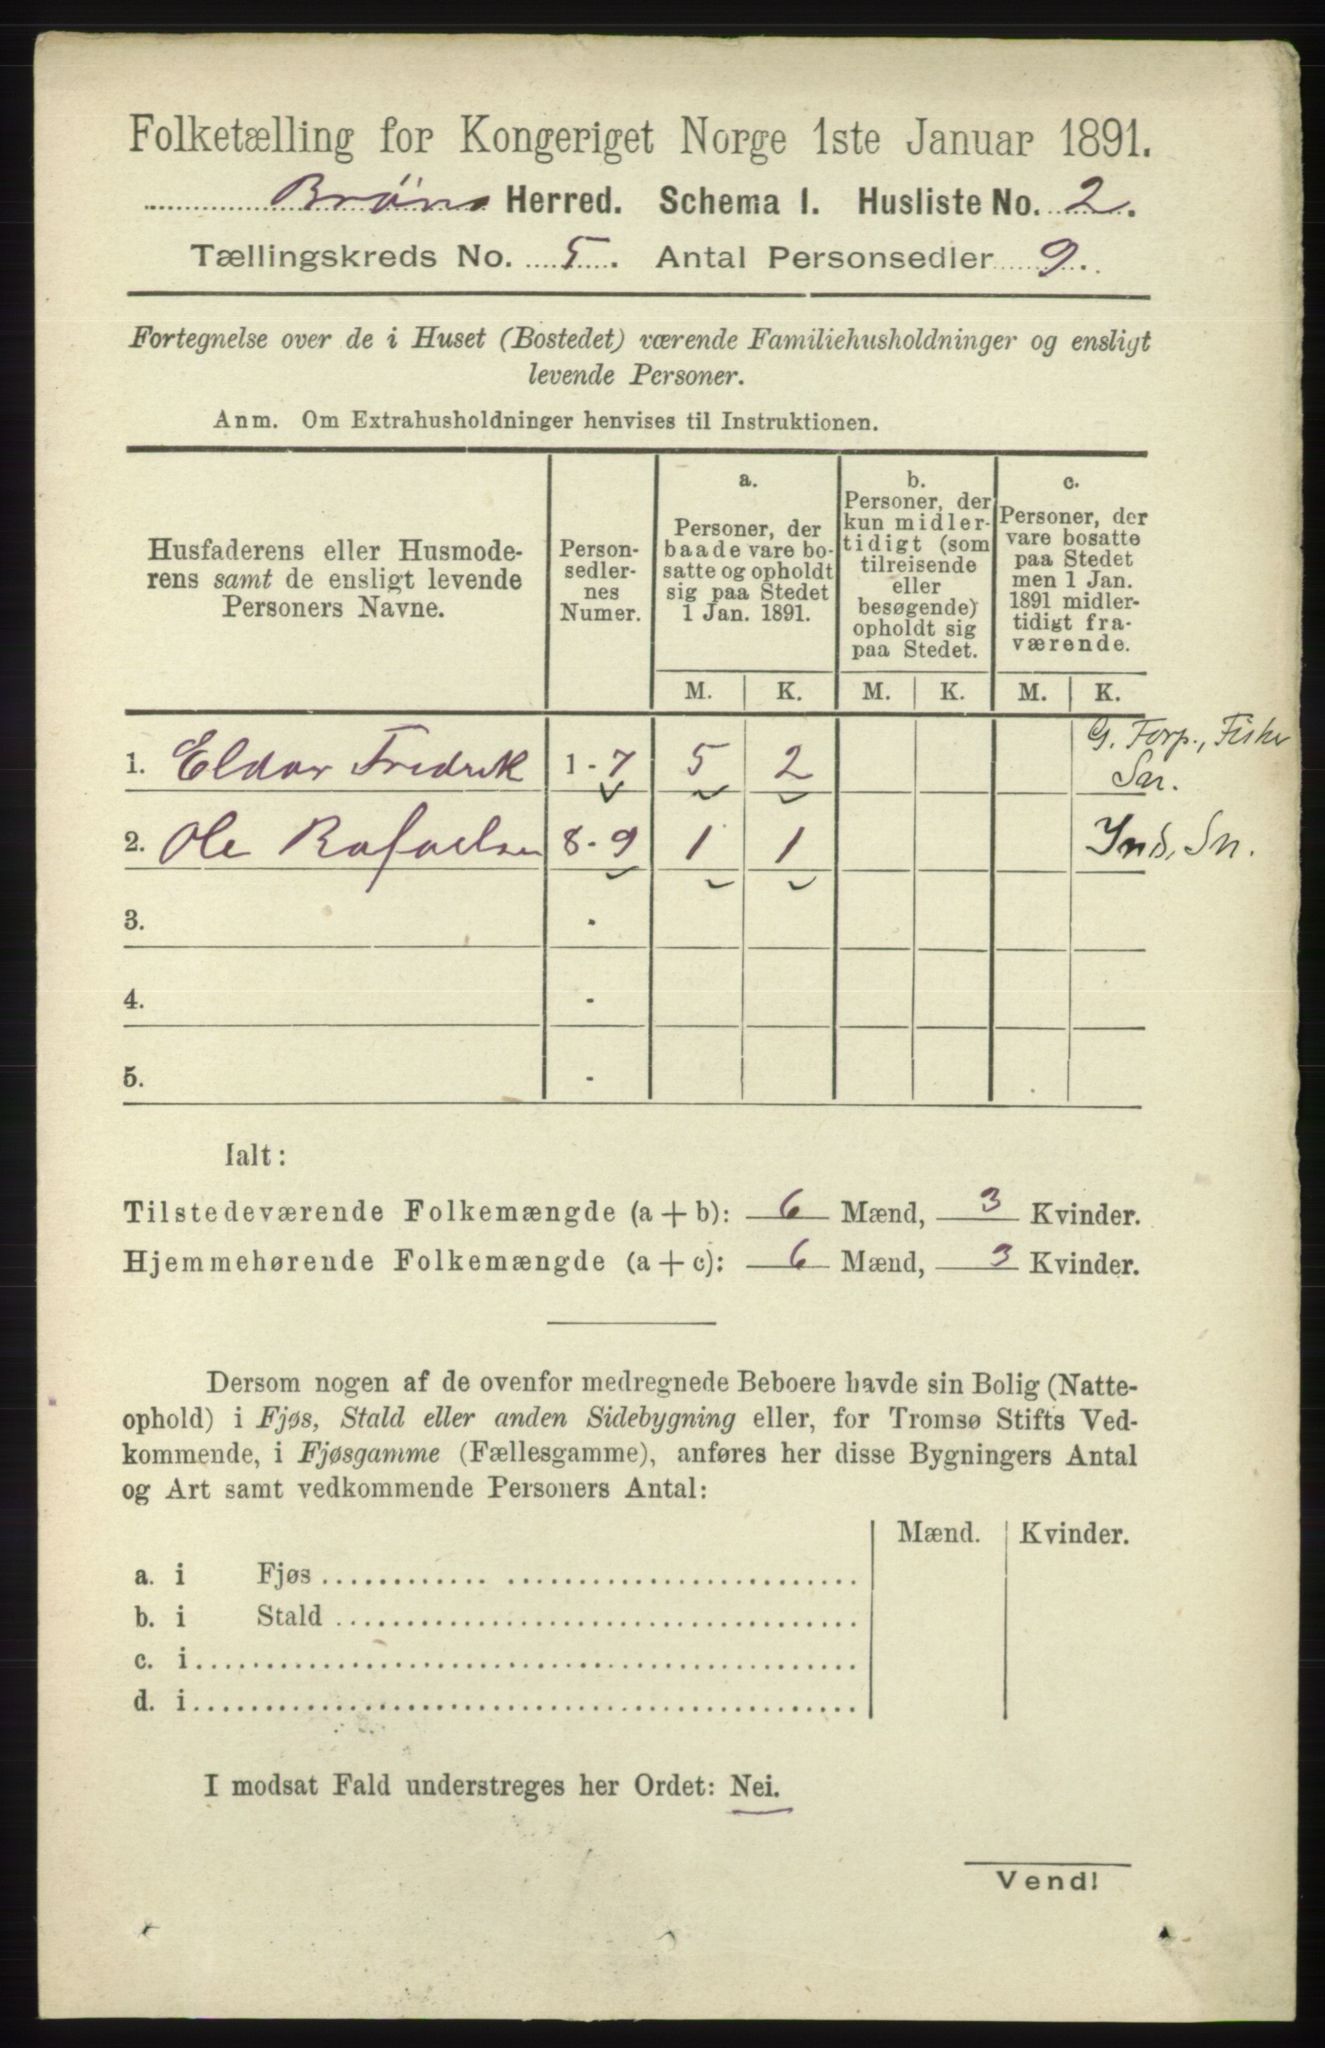 Folketælling for Kongeriget Norge 1ste Januar 1891.
Brønø Herred. Schema I. Husliste No. 2.
Tællingskreds No. 5. Antal Personsedler 9.
Fortegnelse over de i Huset (Bostedet) værende Familiehusholdninger og ensligt
levende Personer.
Anm. Om Extrahusholdninger henvises til Instruktionen.
Husfaderens eller Husmode-
rens samt de ensligt levende
Personers Navne.
Person-
sedler-
nes
Numer.
a.
Personer, der
baade vare bo-
satte og opholdt
sig paa Stedet
1 Jan. 1891.
b.
Personer, der
kun midler-
tidigt (som
tilreisende
eller
besøgende)
opholdt sig
paa Stedet.
c.
Personer, der
vare bosatte
paa Stedet
men 1 Jan.
1891 midler-
tidigt fra-
værende.
M. K. M. K. M. K.
1. Eldar Fredrik 1 - 7 5 2 G. Forp., Fisker
Sn.
2. Ole Rafaelsen 8 - 9 1 1 Ind. Sn.
3. -
4. -
5. -
Ialt:
Tilstedeværende Folkemængde (a + b): 6 Mænd, 3 Kvinder.
Hjemmehørende Folkemængde (a + c): 6 Mænd, 3 Kvinder.
Dersom nogen af de ovenfor medregnede Beboere havde sin Bolig (Natte-
ophold) i Fjøs, Stald eller anden Sidebygning eller, for Tromsø Stifts Ved-
kommende, i Fjøsgamme (Fællesgamme), anføres her disse Bygningers Antal
og Art samt vedkommende Personers Antal:
Mænd. Kvinder.
a. i Fjøs
b. i Stald
c. i
d. i
I modsat Fald understreges her Ordet: Nei.
Vend!